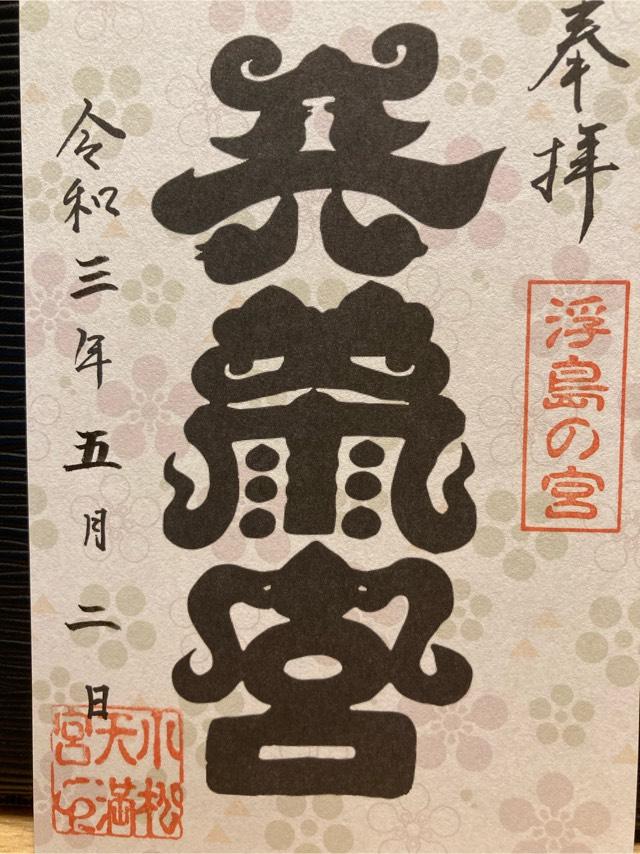 奉拝
浮島の宮
天満宮
令和三年五月二日
小松
天満
宮印